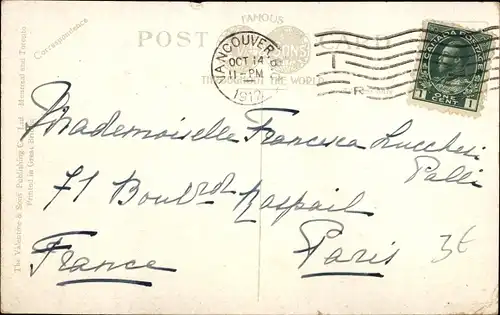 FAMOUS
POST CARD
THROUGHOUT THE WORLD
VANCOUVER
OCT 14
11-PM
191
CANADA POSTAGE
1 1
ONE
CENT
Correspondence
The Valentine & Sons' Publishing Co., Ltd. Montreal and Toronto
Printed in Great Britain
Mademoiselle Francesca Lucchesi
Palli
71 Boulrdt Raspail
Paris
France